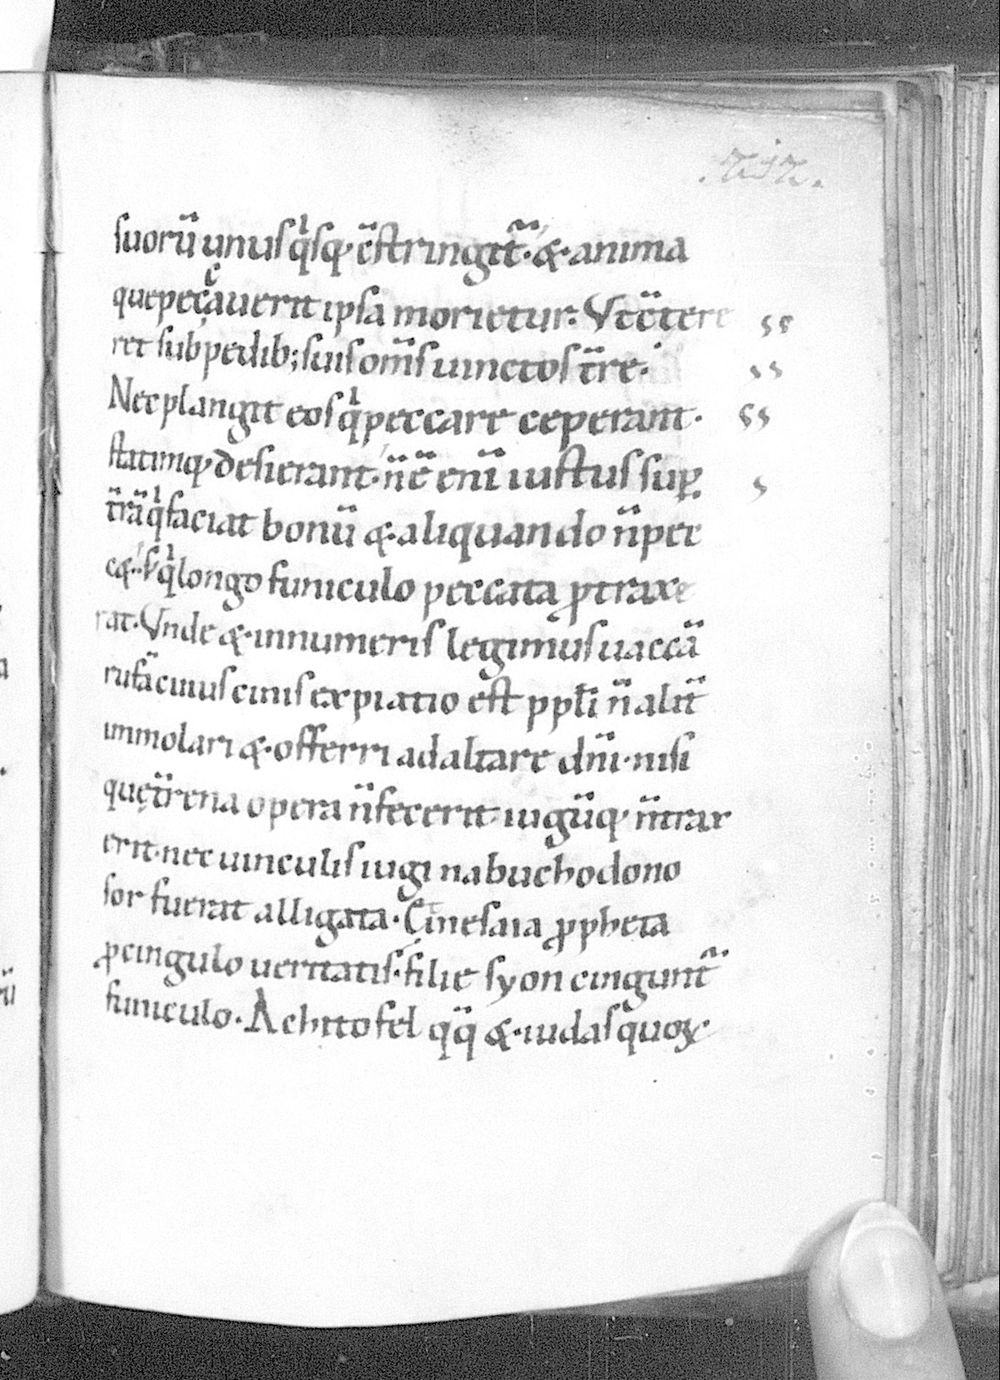 suorū unusq̇sq· c̄stringit̄· &· anima
que peccauerit ipsa morietur. Vt c̄tere
ret sub pedib; suis om̄s uinctos t̄re·
Nec plangit eos q̇ peccare ceperant·
statimq· desierant· n̄ ē enī iustus sup̱
t̄rā q̇ faciat bonū &· aliquando n̄ pec
c&· s; q̇ longo funiculo peccata ꝓtraxe
rat· Vnde &· innumeris legimus uaccā
rufā cuius cinis expiatio est pp̄li n̄ alit̄
immolari &· offerri ad altare dn̄i· nisi
quę t̄rena opera n̄ fecerit· iugūq· n̄ trax
erit· nec uinculis iugi nabuchodono
sor fuerat alligata· Cinesaia ꝓpheta
ꝓ cingulo ueritatis· filie syon cingunt̄
funiculo· Achitofel qq̄ &· iudas quoꝝ·